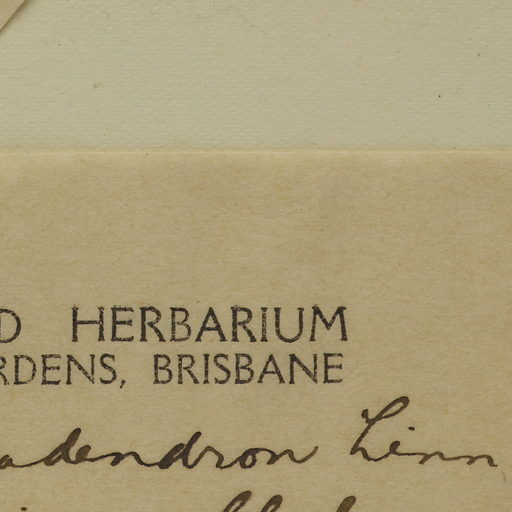 D HERBARIUM
RDENS, BRISBANE
adendron Linn